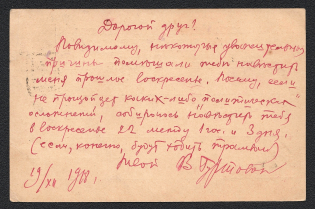 Дорогой друг!
Повидимому, некоторые уважительные
причины помешали тебе навестить
меня прошлое воскресенье. Посему, если
не произойдет каких-либо "политических
осложнений", собираюсь навестить тебя
в воскресенье 22 между 1 час. и 3 дня.
(если, конечно, будут ходить трамваи)
Твой В.
29/XII 1918 г.